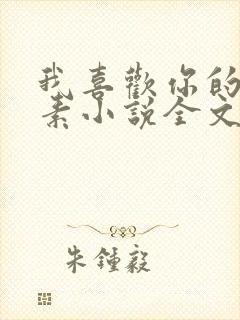 我喜歡你的
素小說全文
朱鍾毅